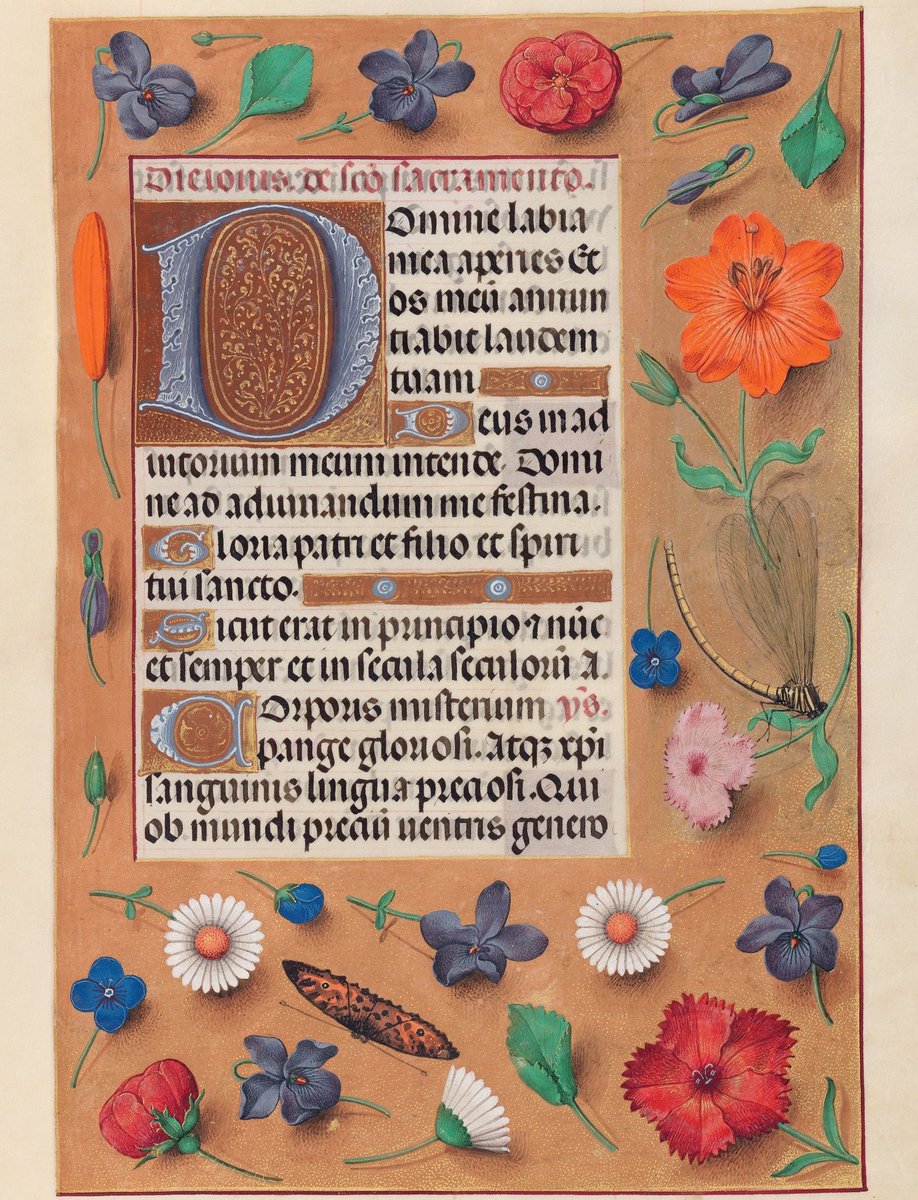 Die iouis. de scō sacramento.
Domine labia
mea aperies Et
os meū annun
tiabit laudem
tuam.
Deus in ad
iutorium meum intende. Domi
ne ad adiuuandum me festina.
Gloria patri et filio et spiri
tui sancto.
Sicut erat in principio ⁊ nūc
et semper et in secula seculorū A.
Corporis misterium ys.
pange gloriosi. Atqꝫ xp̄i
sanguinis lingua preciosi. Qui
ob mundi preciū uentris genero